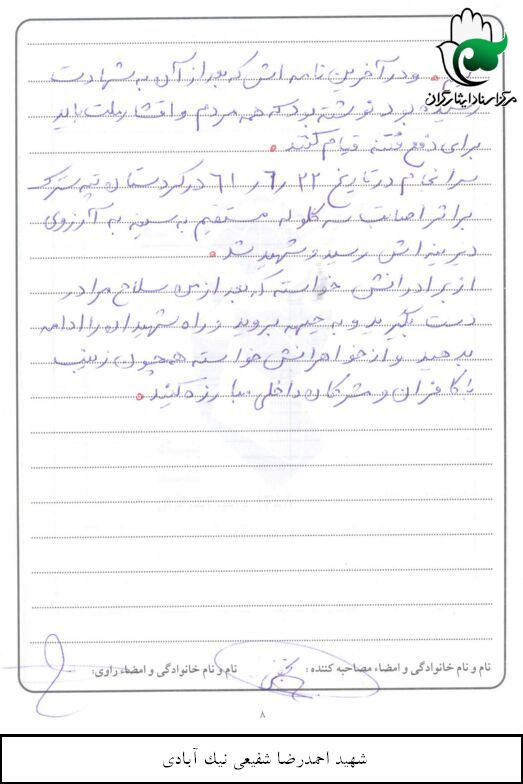 مرکز اسناد ایثارگران
و در آخرین نامه اش که بعد از آن به شهادت
رسید بود نوشته بود که همه مردم و اقشار ملت باید
برای دفع فتنه قیام کنند.
سرانجام در تاریخ ۲۲ ر ۶ ر ۶۱ در کردستان تپه سترک
بر اثر اصابت سه گلوله مستقیم به سینه به آرزوی
دیرینه اش رسید و شهید شد.
از برادرانش خواسته که بعد از من سلاح مرا در
دست بگیرید و به جبهه بروید و راه شهیدان را ادامه
بدهید و از خواهرانش خواسته همچون زینب
با کافران و مشرکان داخلی مبارزه کنید.
نام و نام خانوادگی و امضاء مصاحبه کننده:
نام و نام خانوادگی و امضاء راوی:
۸
شهید احمدرضا شفیعی نیك آبادی